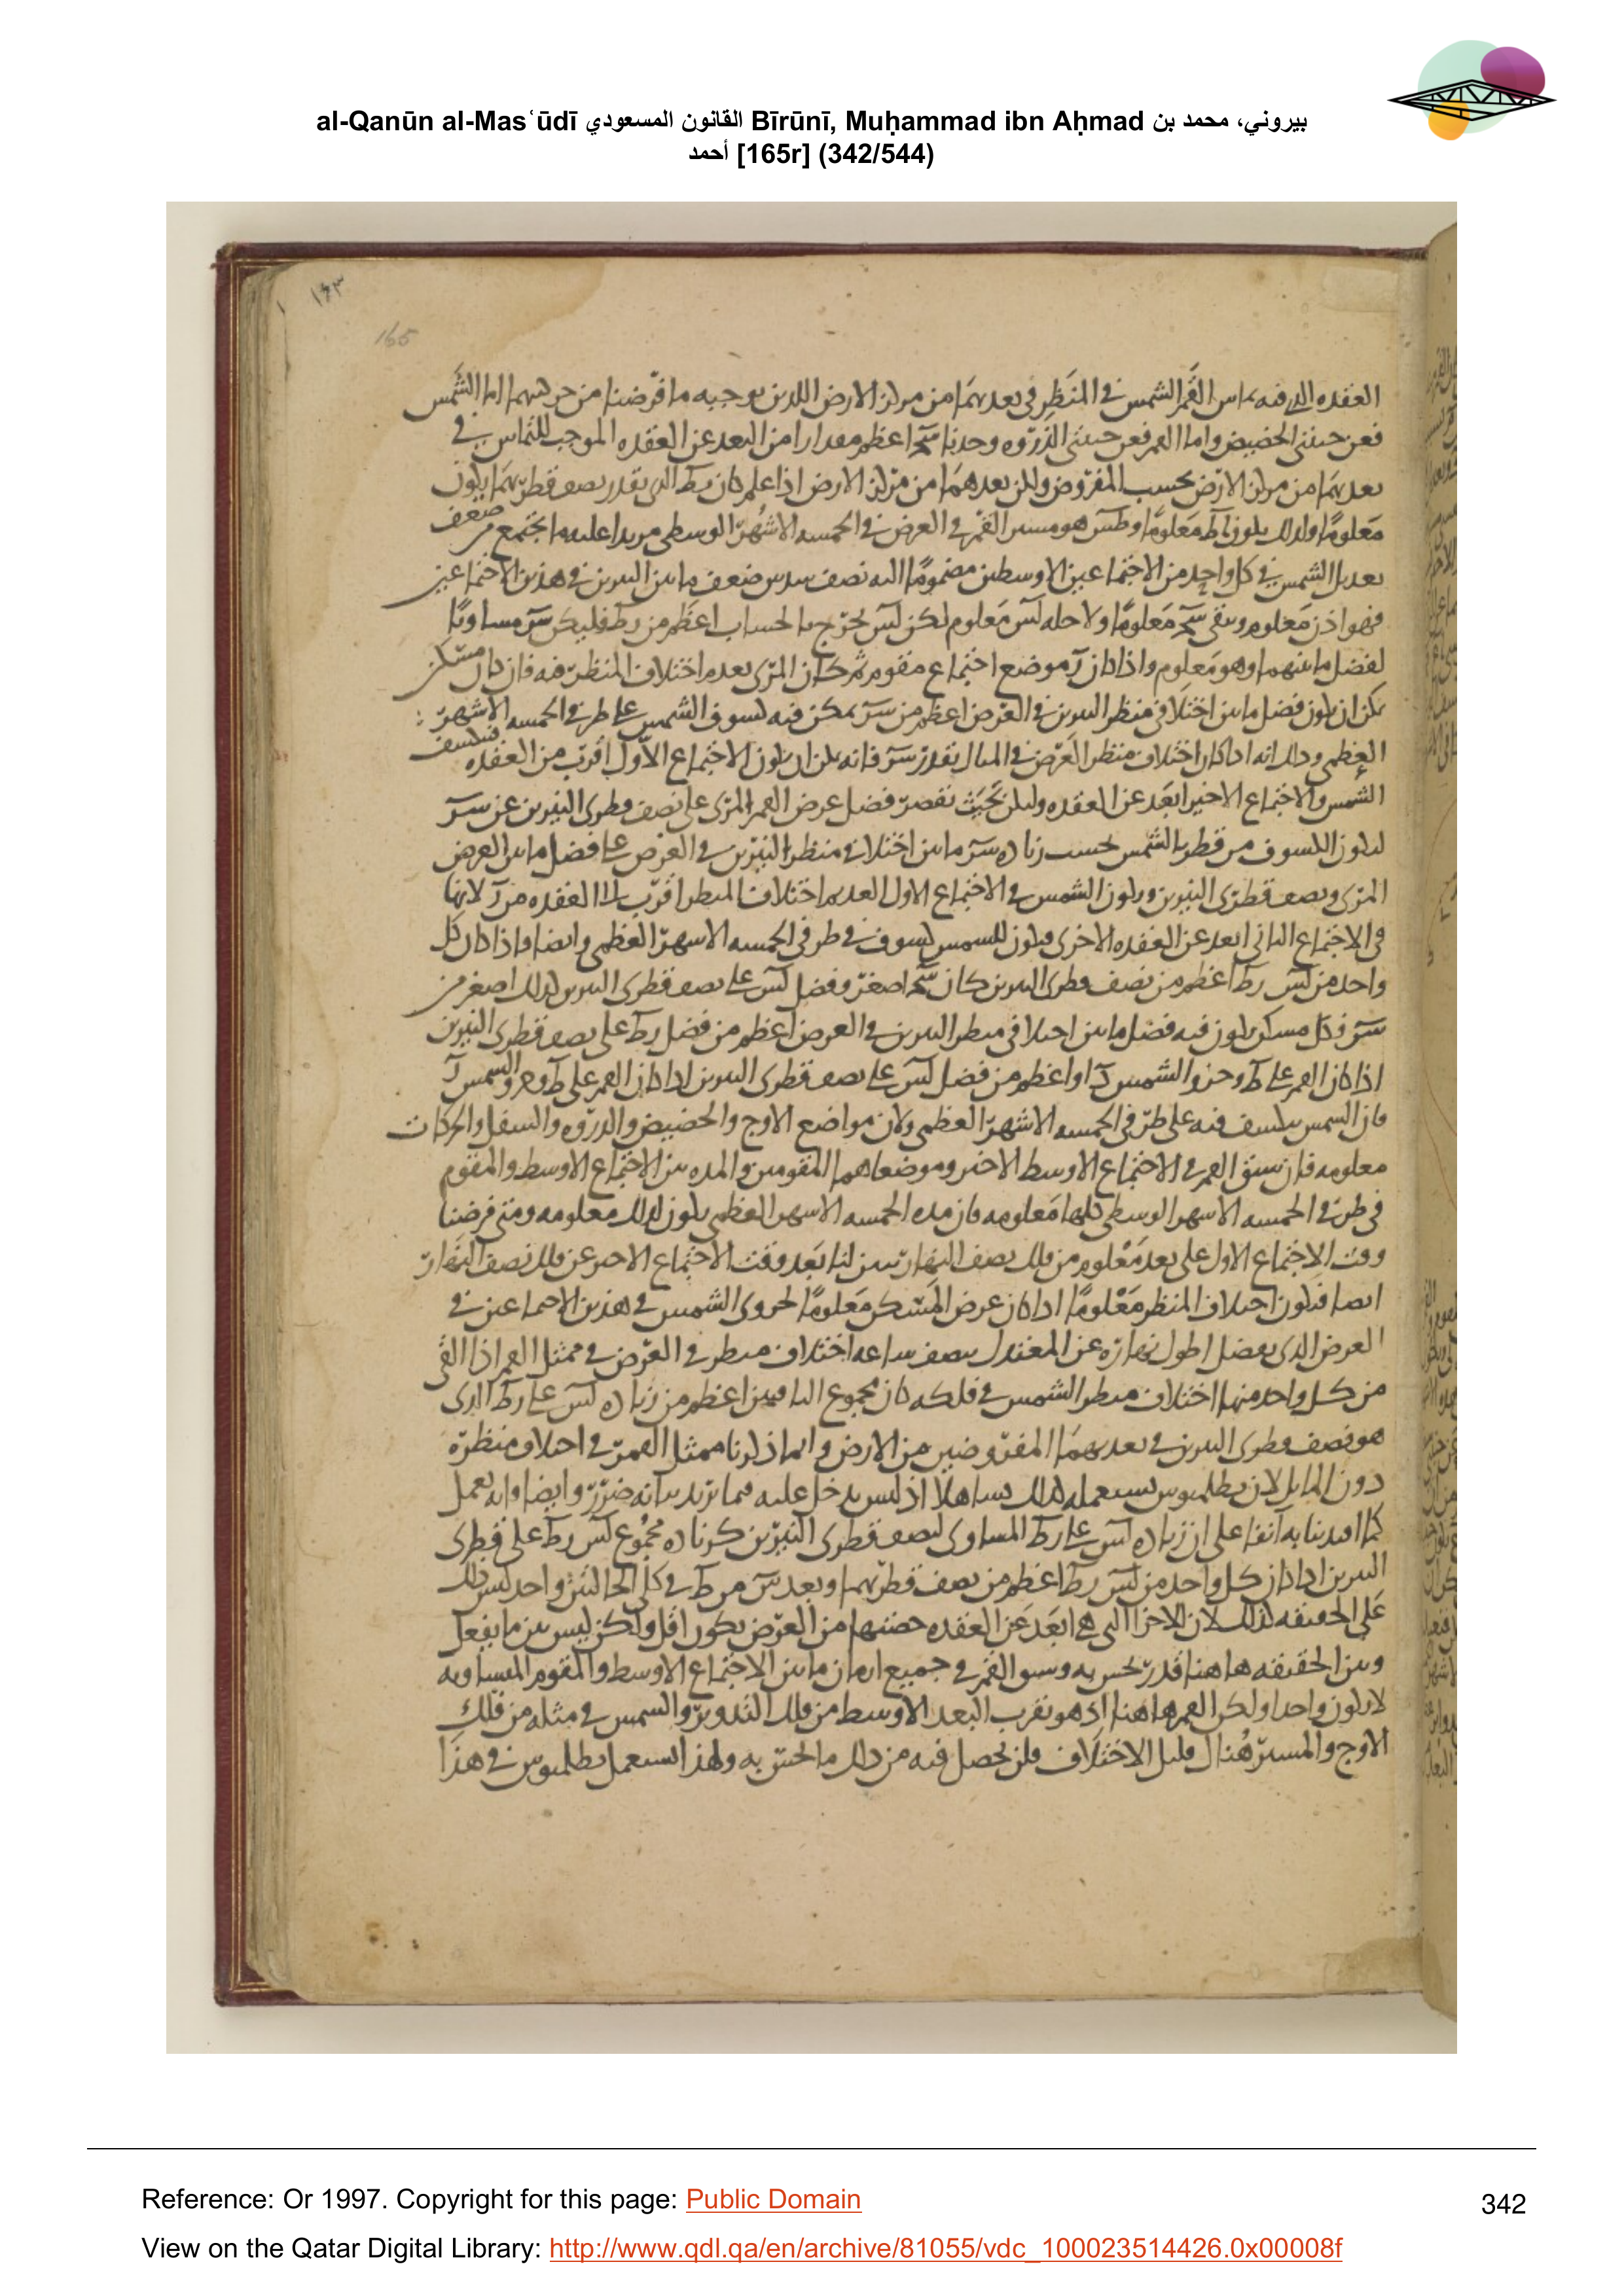 al-Qanūn al-Mas‘ūdī القانون المسعودي Bīrūnī, Muḥammad ibn Aḥmad بيروني، محمد بن
أحمد [165r] (342/544)
١٦٣
165
العقده التي فيه يماس القمر الشمس في المنظر في بعديهما من مركز الارض اللذين يوجبه ما فرضنا من حركتيهما اما الشمس
فعن جنبتي الحضيض واما القمر فعن جنبتي الذروه وجدنا اعظم مقدارا من البعد عن العقده الموجب للتماس في
بعديهما من مركز الارض بحسب المفروض ولكن بعدهما من مركز الارض اذا علم كان الذي بقدر نصف قطريهما يكون
معلوما ولذلك يكون معلوما هو مسير القمر في العرض في الخمسه الاشهر الوسطى مزيدا عليه ما اجتمع من ضعف
تعديل الشمس في كل واحد من الاجتماعين الاوسطين مضموما اليه نصف سدس ضعف ما بين النيرين في هذين الاجتماعين
فهو اذن معلوم ويبقى معلوما ولاجله معلوم لكن يخرج بالحساب اعظم من فليكن مساويا
لفضل ما بينهما وهو معلوم واذا كان موضع اجتماع مقوم المرئى بعدم اختلاف المنظر فيه فان كل مسكن
يمكن ان يكون فضل ما بين اختلافي منظر النيرين في العرض اعظم من يمكن فيه كسوف الشمس على طرفي الخمسه الاشهر
العظمى وذلك انه اذا كان اختلاف منظر العرض في المثال بقدر فانه يمكن ان يكون الاجتماع الاول اقرب من العقده فينكسف
الشمس والاجتماع الاخير ابعد عن العقده وليكن بحيث يقصر فضل عرض القمر المرئى على نصف قطرى النيرين عن
ليكون الكسوف من قطر الشمس بحسب زياده ما بين اختلافي منظر النيرين في العرض على فضل ما بين العرض
المرئى ونصف قطرى النيرين ويكون الشمس في الاجتماع الاول العديم اختلاف المنظر اقرب الى العقده من لانها
في الاجتماع الثاني ابعد عن العقده الاخرى ويكون للشمس كسوف في طرفي الخمسه الاشهر العظمى وايضا واذا كان كل
واحد من اعظم من نصف قطرى النيرين كان اصغر وفضل على نصف قطرى النيرين لذلك اصغر من
فكل مسكن يكون فيه فضل ما بين اختلافي منظر النيرين في العرض اعظم من فضل على نصف قطرى النيرين
اذا كان القمر على وجزو الشمس او اعظم من فضل على نصف قطرى النيرين اذا كان القمر على وجزو الشمس
فان الشمس ينكسف فيه على طرفي الخمسه الاشهر العظمى ولان مواضع الاوج والحضيض والذروه والسفل والحركات
معلومه فان سبق القمر في الاجتماع الاوسط الاخير وموضعاهما المقومين والمده بين الاجتماع الاوسط والمقوم
في طرفي الخمسه الاشهر الوسطى كلها معلومه فان مده الخمسه الاشهر العظمى يكون لذلك معلومه ومتى فرضنا
وقت الاجتماع الاول على بعد معلوم من فلك نصف النهار تبين لنا بعد وقت الاجتماع الاخير عن فلك نصف النهار
ايضا فيكون اختلاف المنظر معلوما اذا كان عرض المسكن معلوما لجزوى الشمس في هذين الاجتماعين في
العرض الذى يفضل اطول نهاره عن المعتدل بنصف ساعه اختلاف منظر في العرض في ممثل القمر اذا القى
من كل واحد منها اختلاف منظر الشمس في فلكه كان مجموع الباقيين اعظم من زياده على الذى
هو نصف قطرى النيرين في بعديهما المفروضين من الارض وانما ذكرنا ممثل القمر في اختلاف منظره
دون المايل لان بطلميوس يستعمله كذلك تساهلا اذ ليس يدخل عليه فيما يريد بيانه ضرر وايضا فانه يعمل
كما اقتدينا به آنفا على ان زياده على المساوى لنصف قطرى النيرين كزياده مجموع على قطرى
النيرين اذا كان كل واحد من اعظم من نصف قطريهما وبعد من في كلى الحالتين واحد ليس ذلك
على الحقيقه كذلك لان الاجزا التي هي ابعد عن العقده حصتها من العرض يكون اقل ولكن ليس بين ما يفعل
وبين الحقيقه هاهنا قدر يحس به وسبق القمر في جميع ازمان ما بين الاجتماع الاوسط والمقوم المتساويه
لا يكون واحدا ولكن القمر هاهنا اذ هو بقرب البعد الاوسط من فلك التدوير والشمس في مثله من فلك
الاوج والمسير هناك قليل الاختلاف فلن يحصل فيه من ذلك ما يحس به ولهذا استعمل بطلميوس في هذا
Reference: Or 1997. Copyright for this page: Public Domain
342
View on the Qatar Digital Library: http://www.qdl.qa/en/archive/81055/vdc_100023514426.0x00008f